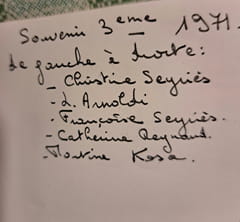 Souvenir 3eme 1971.
de gauche à droite:
- Christine Seyriès
- L. Arnoldi
- Françoise Seyriès.
- Catherine Reynaud.
- Martine Kosa.